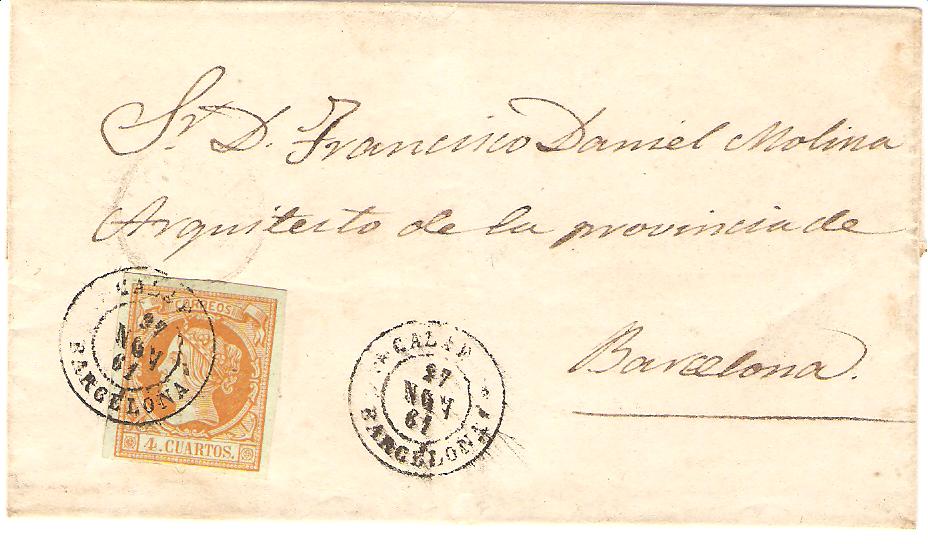 Sr. D. Francisco Daniel Molina
Arquitecto de la provincia de
Barcelona.
CORREOS
4 CUARTOS.
CALAF
27
NOV
61
BARCELONA
CALAF
27
NOV
61
BARCELONA